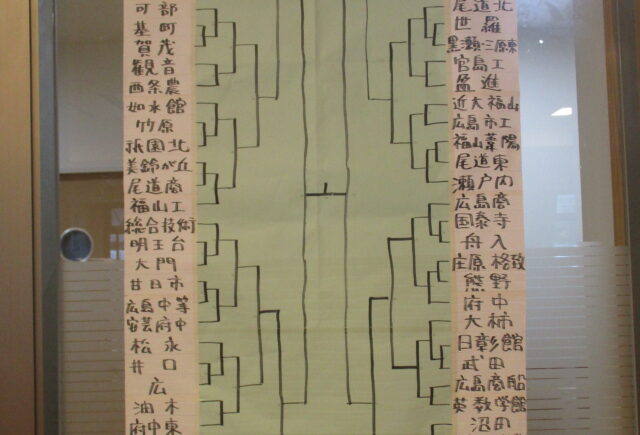 可部
基町
賀茂
観音
西条農
如水館
竹原
祇園北
美鈴が丘
尾道商
福山工
総合技術
明王台
大門
廿日市
広島中等
安芸府中
松永
井口
広
油木
府中東
尾道北
世羅
黒瀬・三原東
宮島工
盈進
近大福山
広島市工
福山葦陽
尾道東
瀬戸内
広島商
国泰寺
舟入
庄原格致
熊野
府中
大柿
日彰館
武田
広島商船
英数学館
沼田